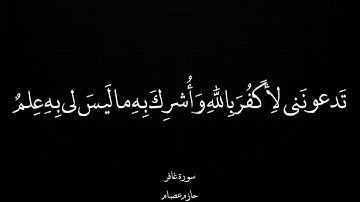 تَدعونَنى لِأَكفُرَ بِاللَّهِ وَأُشرِكَ بِهِ ما لَيسَ لى بِهِ عِلمٌ
سورة غافر
حازم عصام